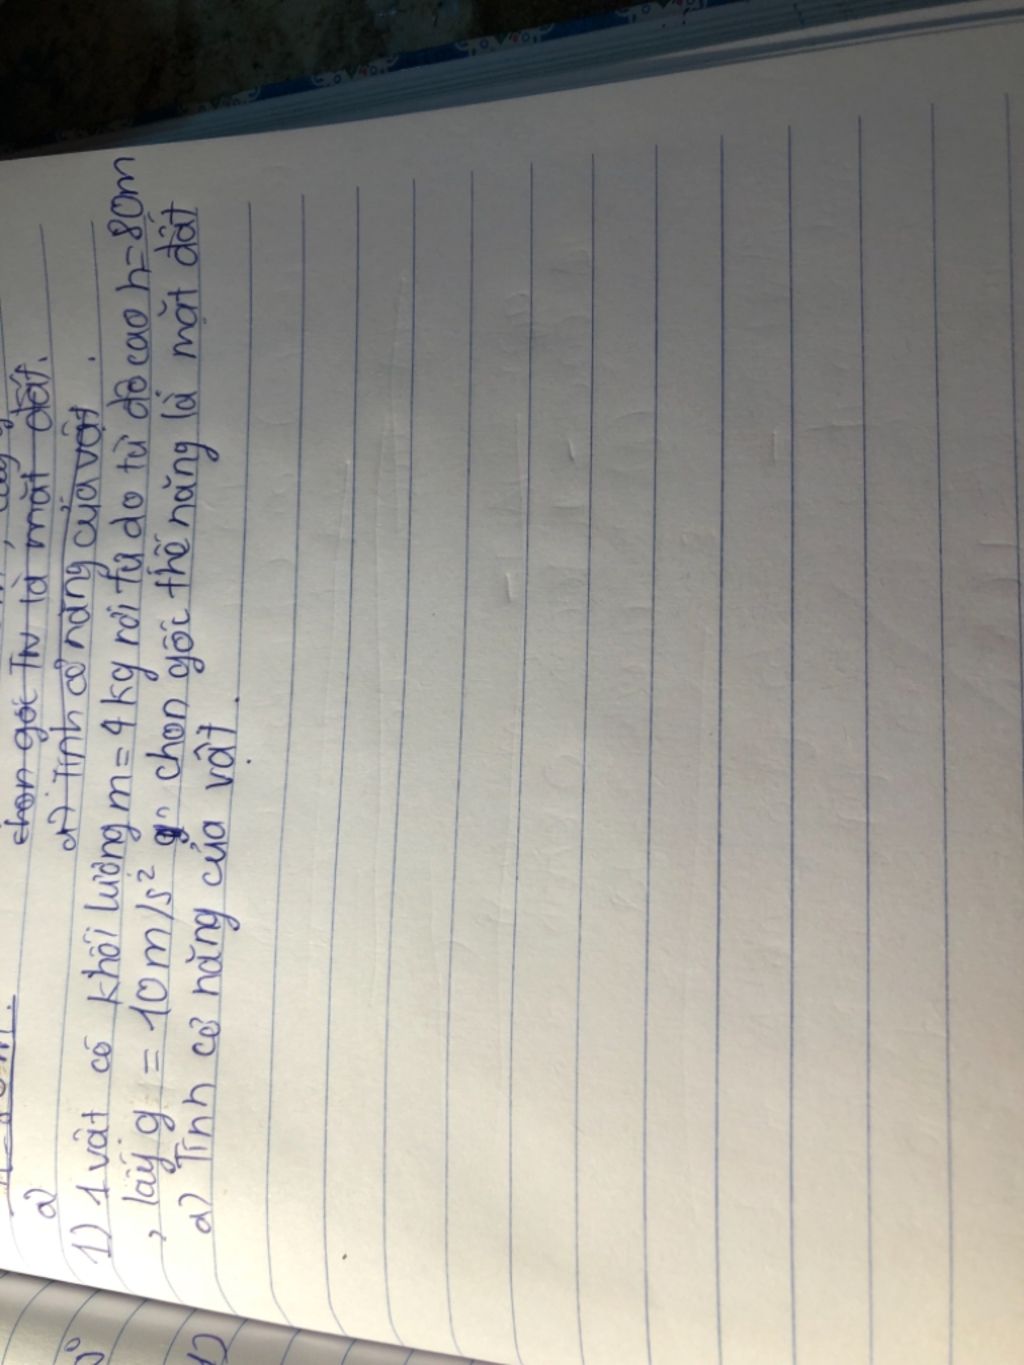 chọn gốc TN là mặt đất.
a)
a) Tính cơ năng của vật.
1) 1 vật có khối lượng m = 4 kg rơi tự do từ độ cao h = 80m
, lấy g = 10 m/s² chọn gốc thế năng là mặt đất
a) Tính cơ năng của vật.